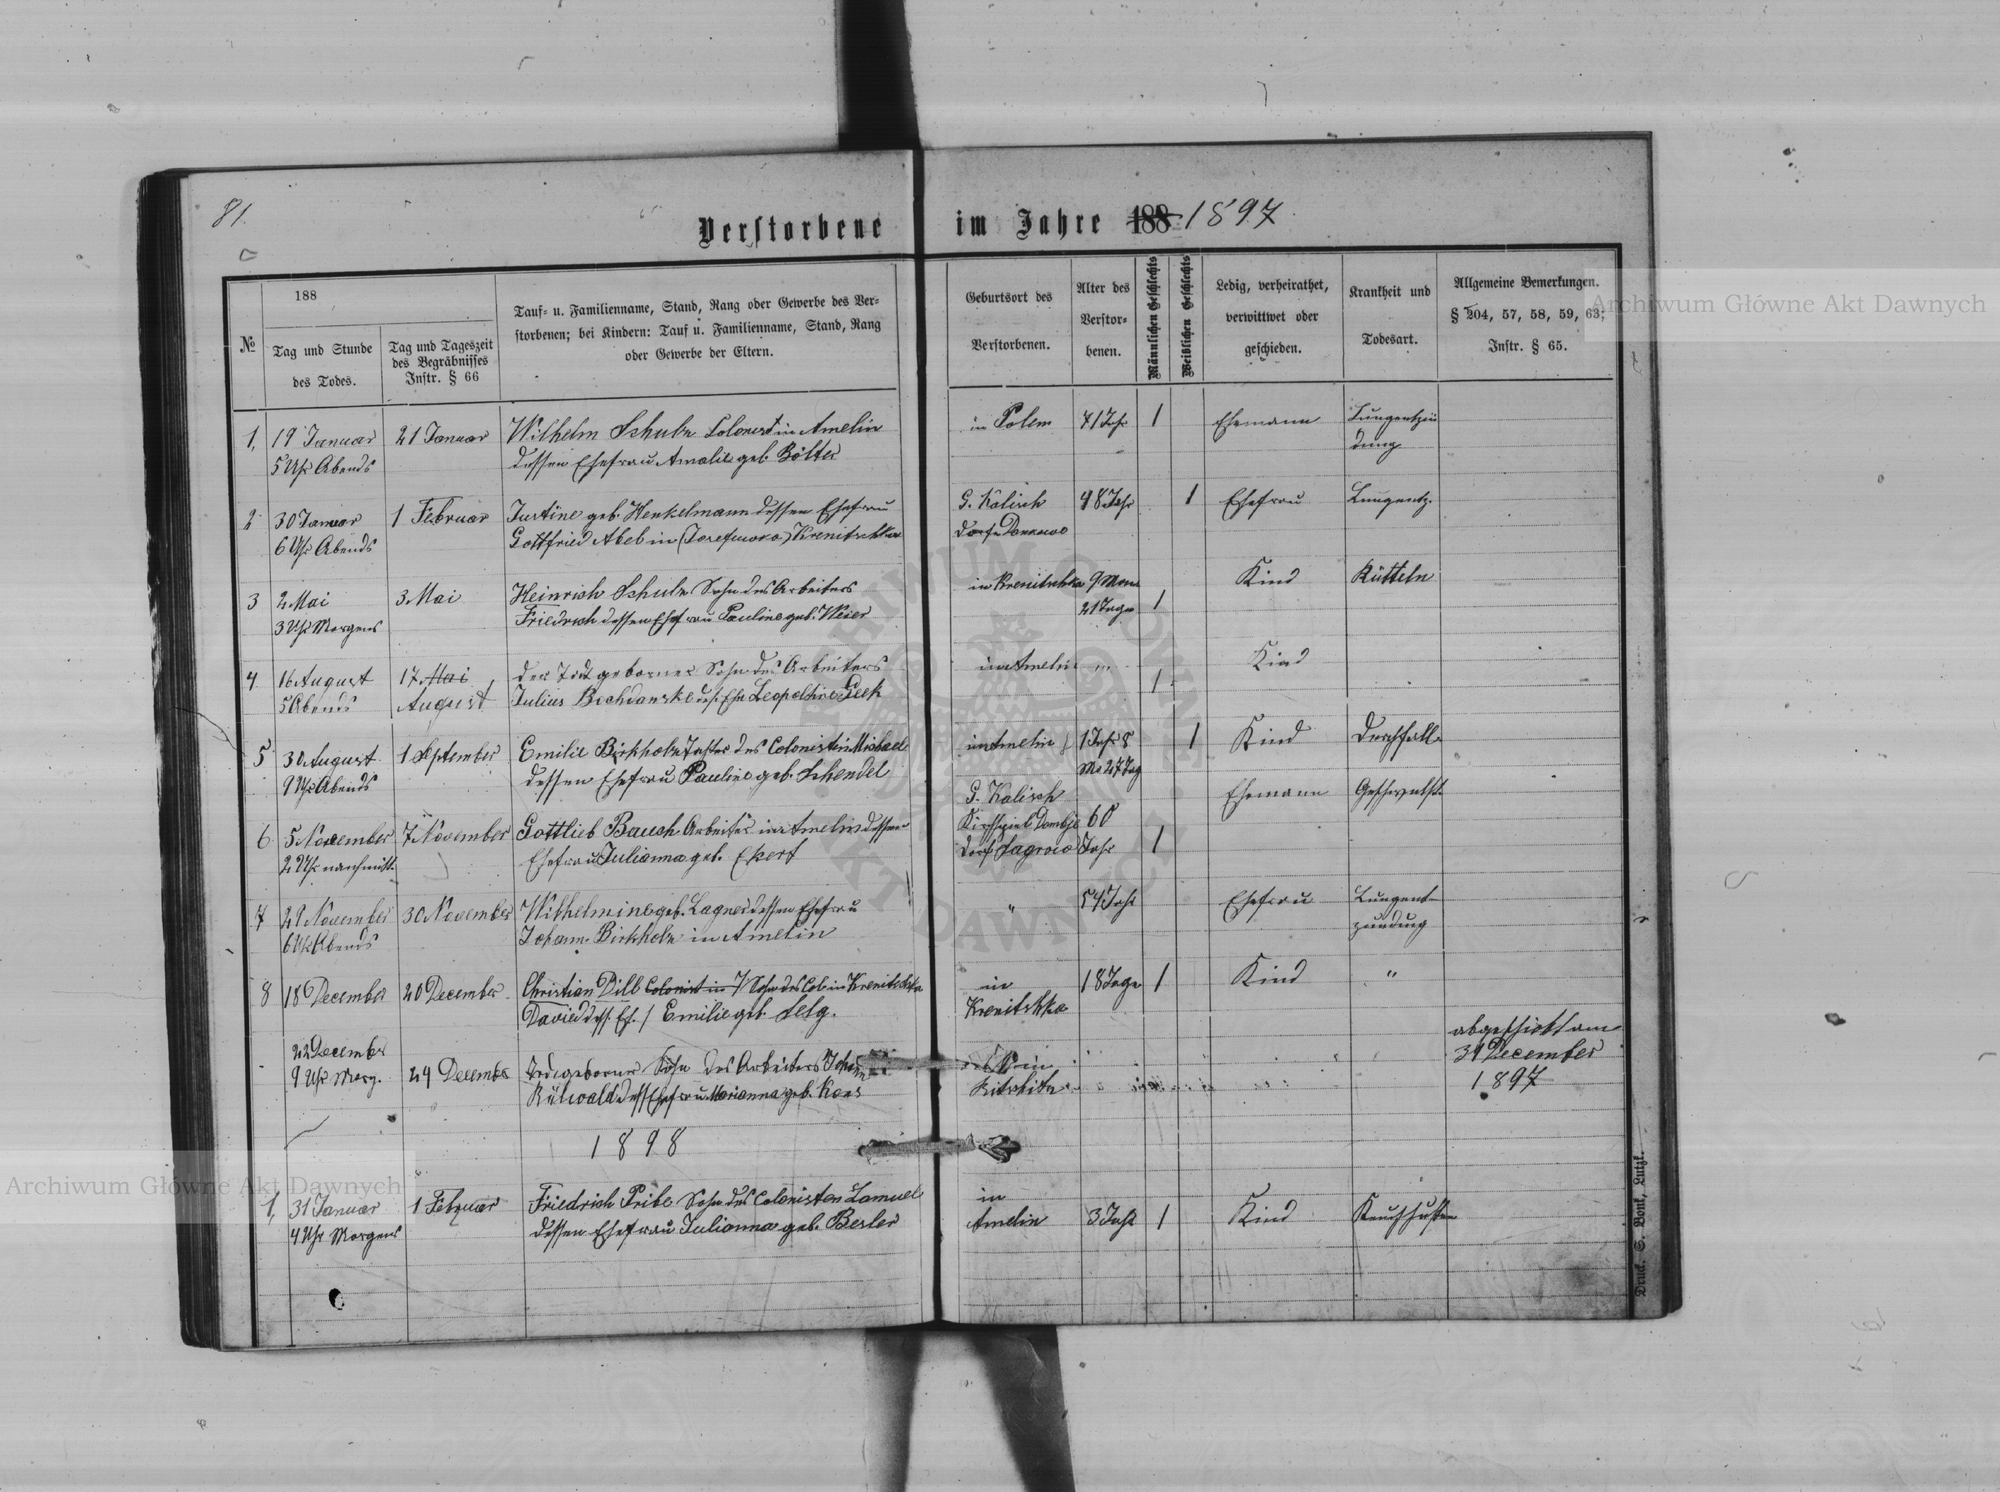 81.
Verstorbene im Jahre 188 1897
№
188
Tag und Stunde
des Todes.
Tag und Tageszeit
des Begräbnisses
Instr. § 66
Tauf- u. Familienname, Stand, Rang oder Gewerbe des Ver-
storbenen; bei Kindern: Tauf u. Familienname, Stand, Rang
oder Gewerbe der Eltern.
Geburtsort des
Verstorbenen.
Alter des
Verstor-
benen.
Männlichen Geschlechts
Weiblichen Geschlechts
Ledig, verheirathet,
verwittwet oder
geschieden.
Krankheit und
Todesart.
Allgemeine Bemerkungen.
§ 204, 57, 58, 59, 63;
Instr. § 65.
1, 19 Januar 21 Januar Wilhelm Schulz Colonist in Amelin in Polem 71 Jhr 1 Ehemann Lungentzün
5 Uhr Abends dessen Ehefrau Amalie geb. Bölter dung
2 30 Januar 1 Februar Justine geb. Henkelmann dessen Ehefrau G. Kalisch 48 Jhr 1 Ehefrau Lungentz.
6 Uhr Abends Gottfried Abel in (Josefinowka) Krenitschka Dorf
3 2 Mai 3 Mai Heinrich Schulz Sohn des Arbeiters in Krenitschka 9 Mon 1 Kind
3 Uhr Morgens Friedrich dessen Ehefrau Pauline geb. Weier 21 Tage
4 16 August 17 Mai der Todtgeborner Sohn des Arbeiters in Amelin 1 Kind
5 Abends August Julius
5 30 August 1 September Emilie Birkholz Tochter des Colonisten Michael in Amelin 1 Jahr 8 1 Kind Durchfall
9 Uhr Abends dessen Ehefrau Pauline geb. Schendel Mo 27 Tag
6 5 November 7 November Gottlieb Bauch Arbeiter in Amelin dessen G. Kalisch 60 1 Ehemann
2 Uhr nachmitt. Ehefrau Julianna geb. Ekert Kirchspiel Dombje Jahr
Dorf
7 29 November 30 November Wilhelmine geb. Lagner dessen Ehefrau " 54 Jahr Ehefrau Lungent-
6 Uhr Abends Johann Birkholz in Amelin zündung
8 18 December 20 December Christian Dill Colonist in Sohn des Col. in Krenitschka in 18 Tage 1 Kind "
David dess. Eh. Emilie geb. Selg. Krenitschka
22 December 24 December Todtgeborner Sohn des Arbeiters Johann abgeschickt am
9 Uhr Morg. dess Ehefrau Marianna geb. 31 December
1897
1898
1, 31 Januar 1 Februar Friedrich Pribe Sohn des Colonisten Samuel in 3 Jahr 1 Kind Keuchhusten
4 Uhr Morgens dessen Ehefrau Julianna geb. Besler Amelin
Druck. S. Bonk, Lutzk.
Archiwum Główne Akt Dawnych
Archiwum Główne Akt Dawnych
ARCHIWUM GŁÓWNE AKT DAWNYCH